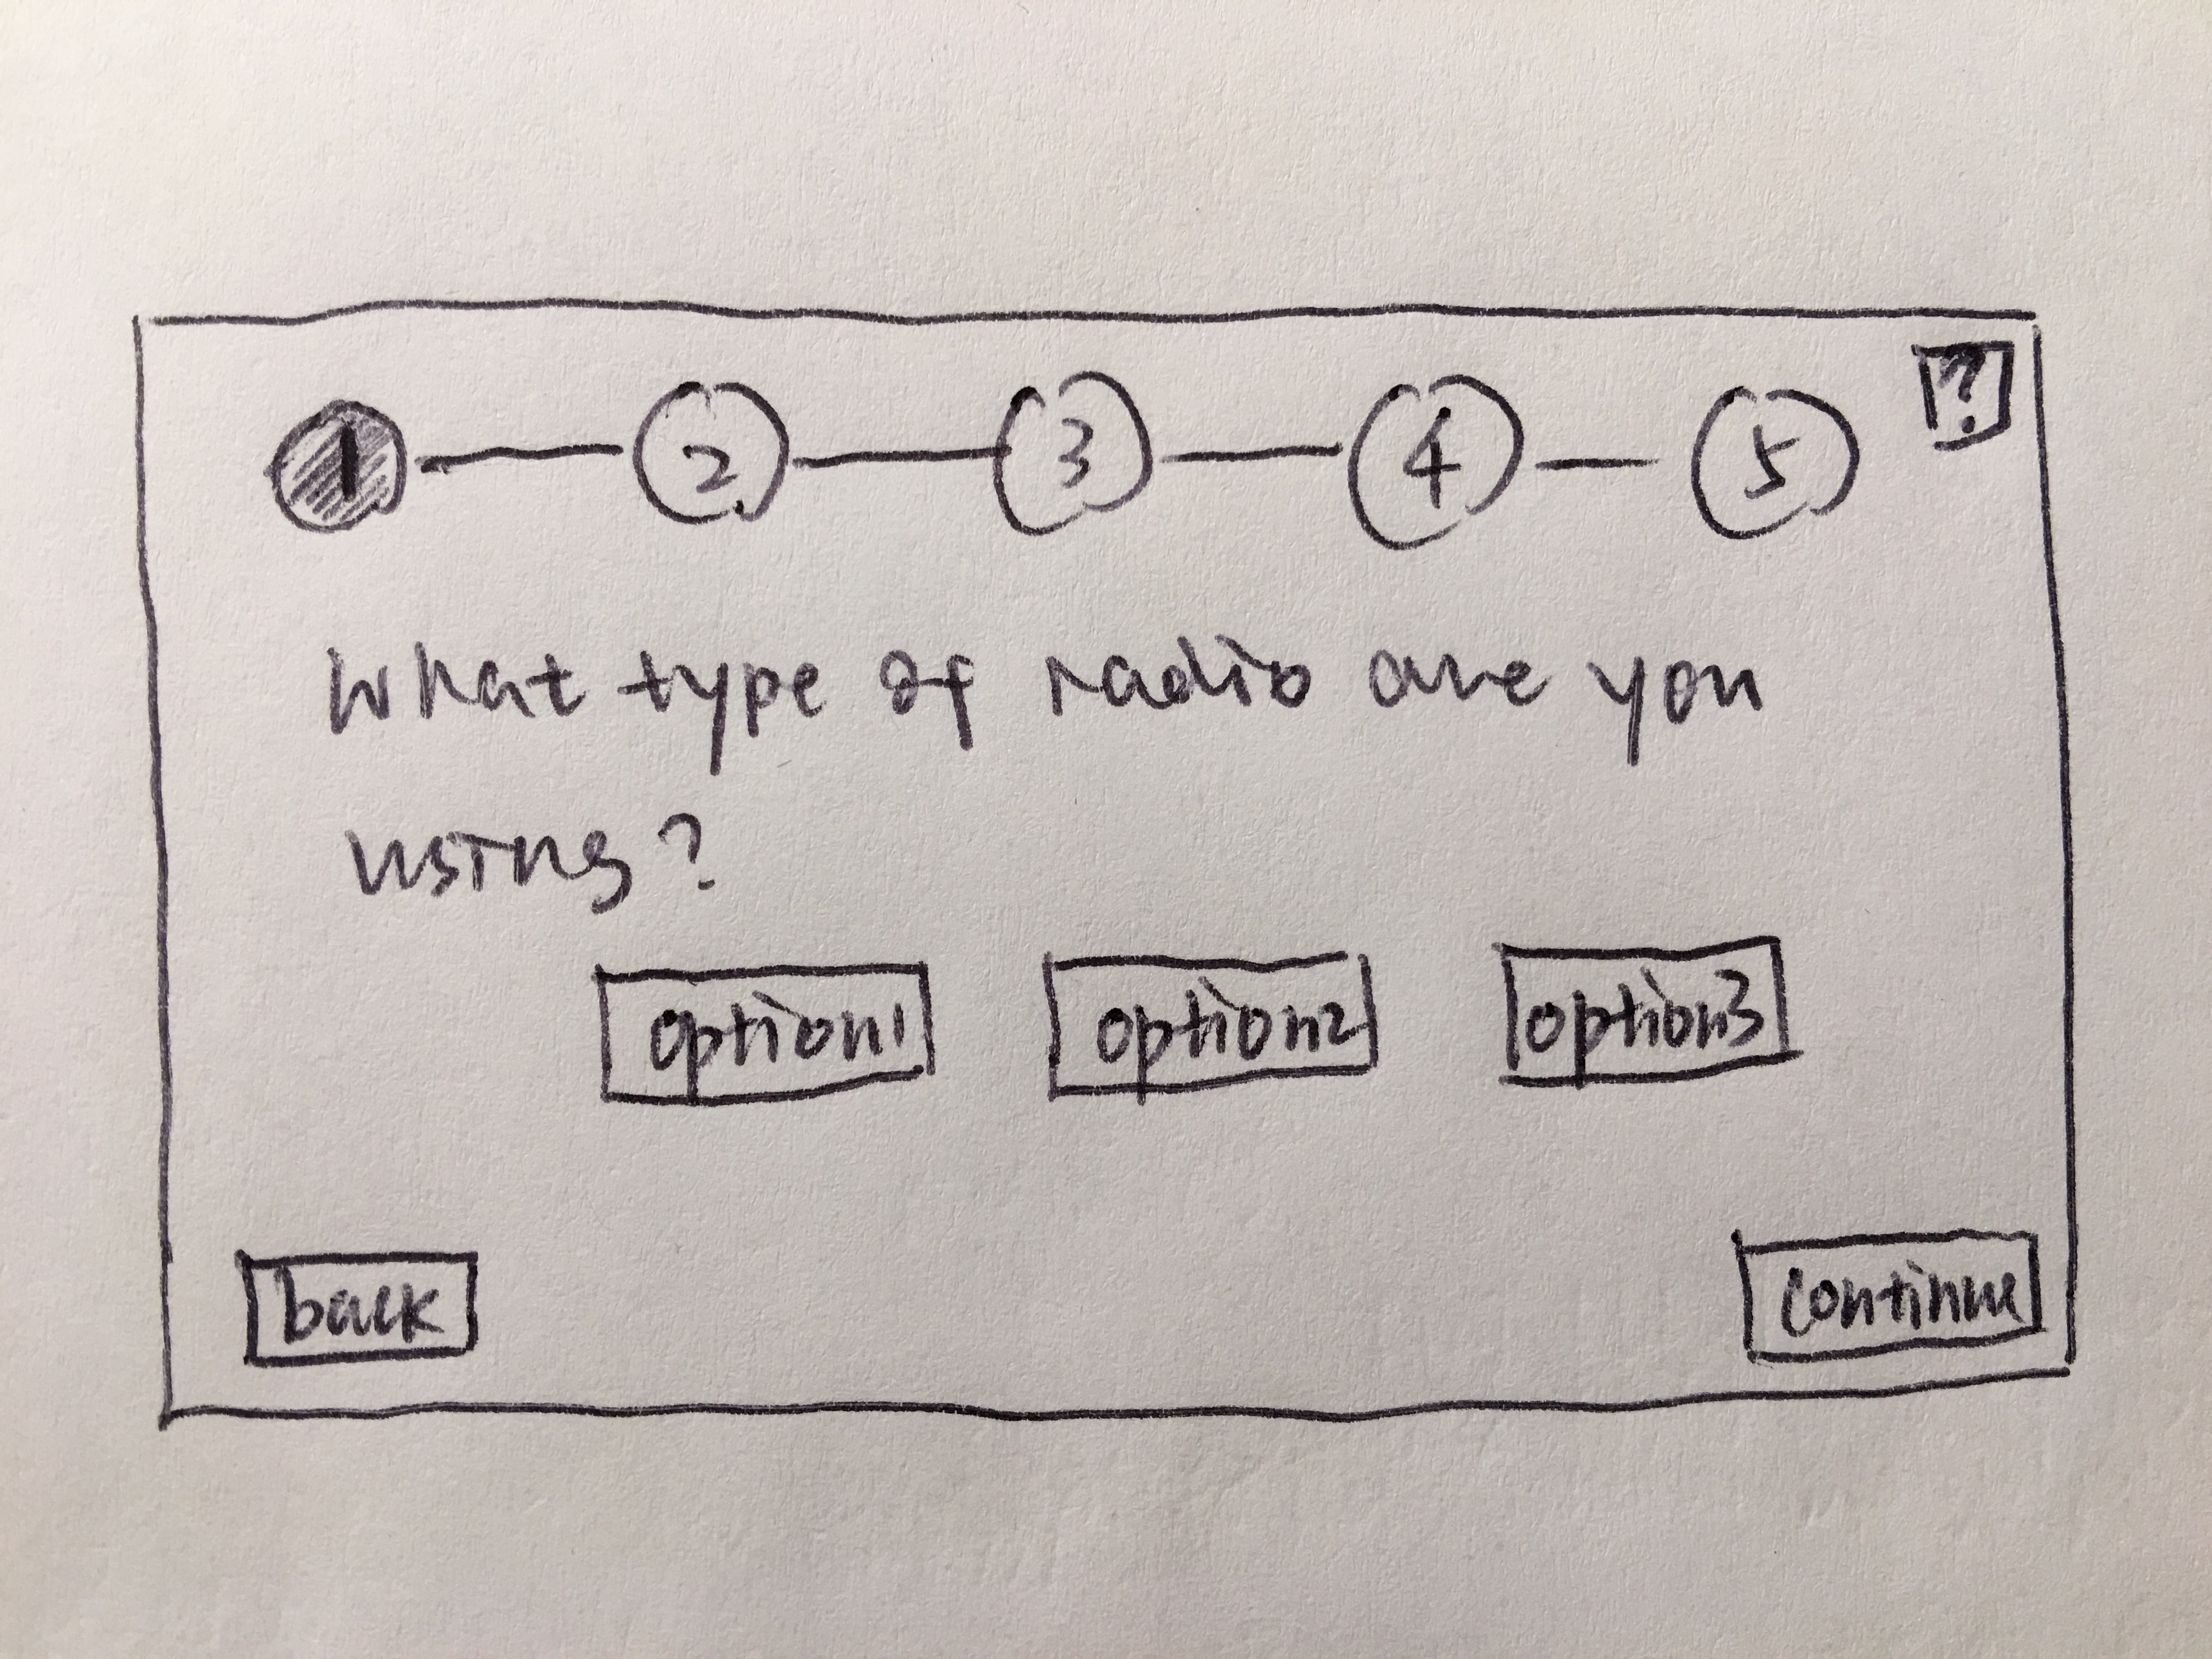 1 2 3 4 5
?
What type of radio are you
using?
option1 option2 option3
back continue